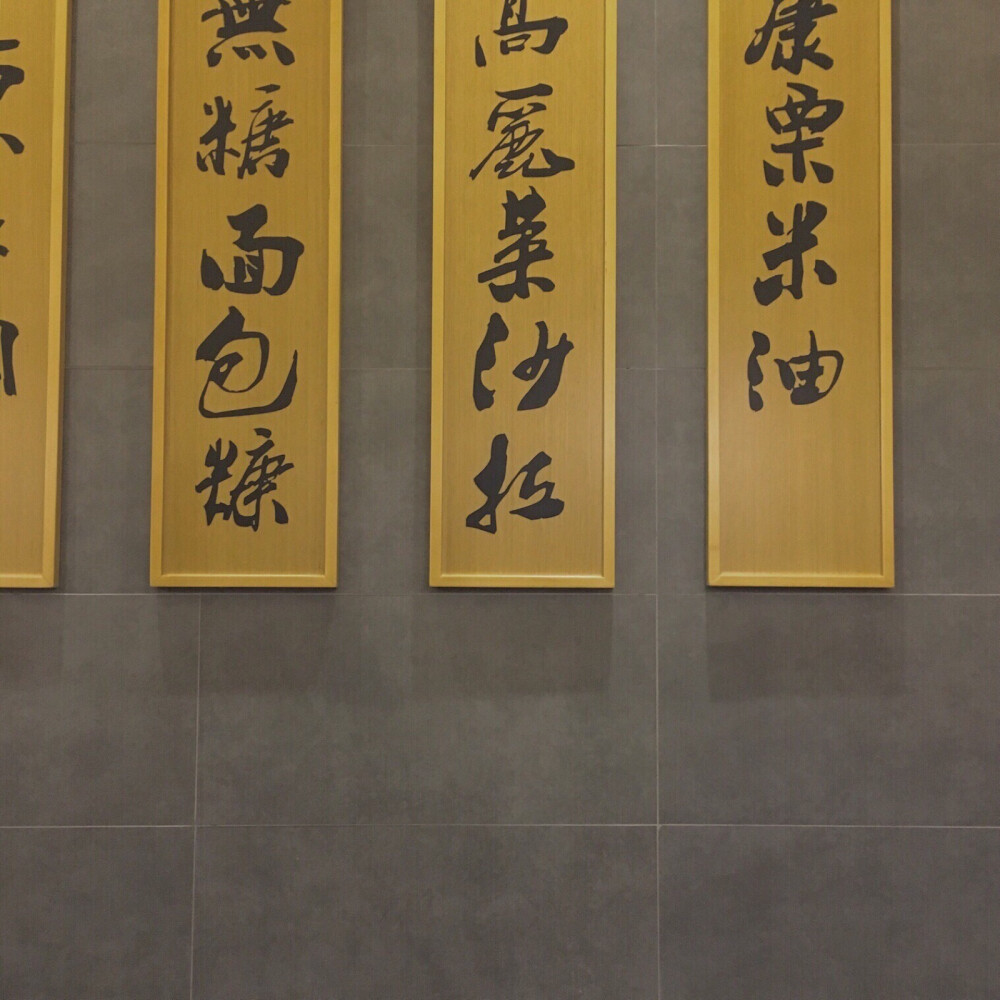 康栗米油
高麗菜沙拉
無糖面包糠